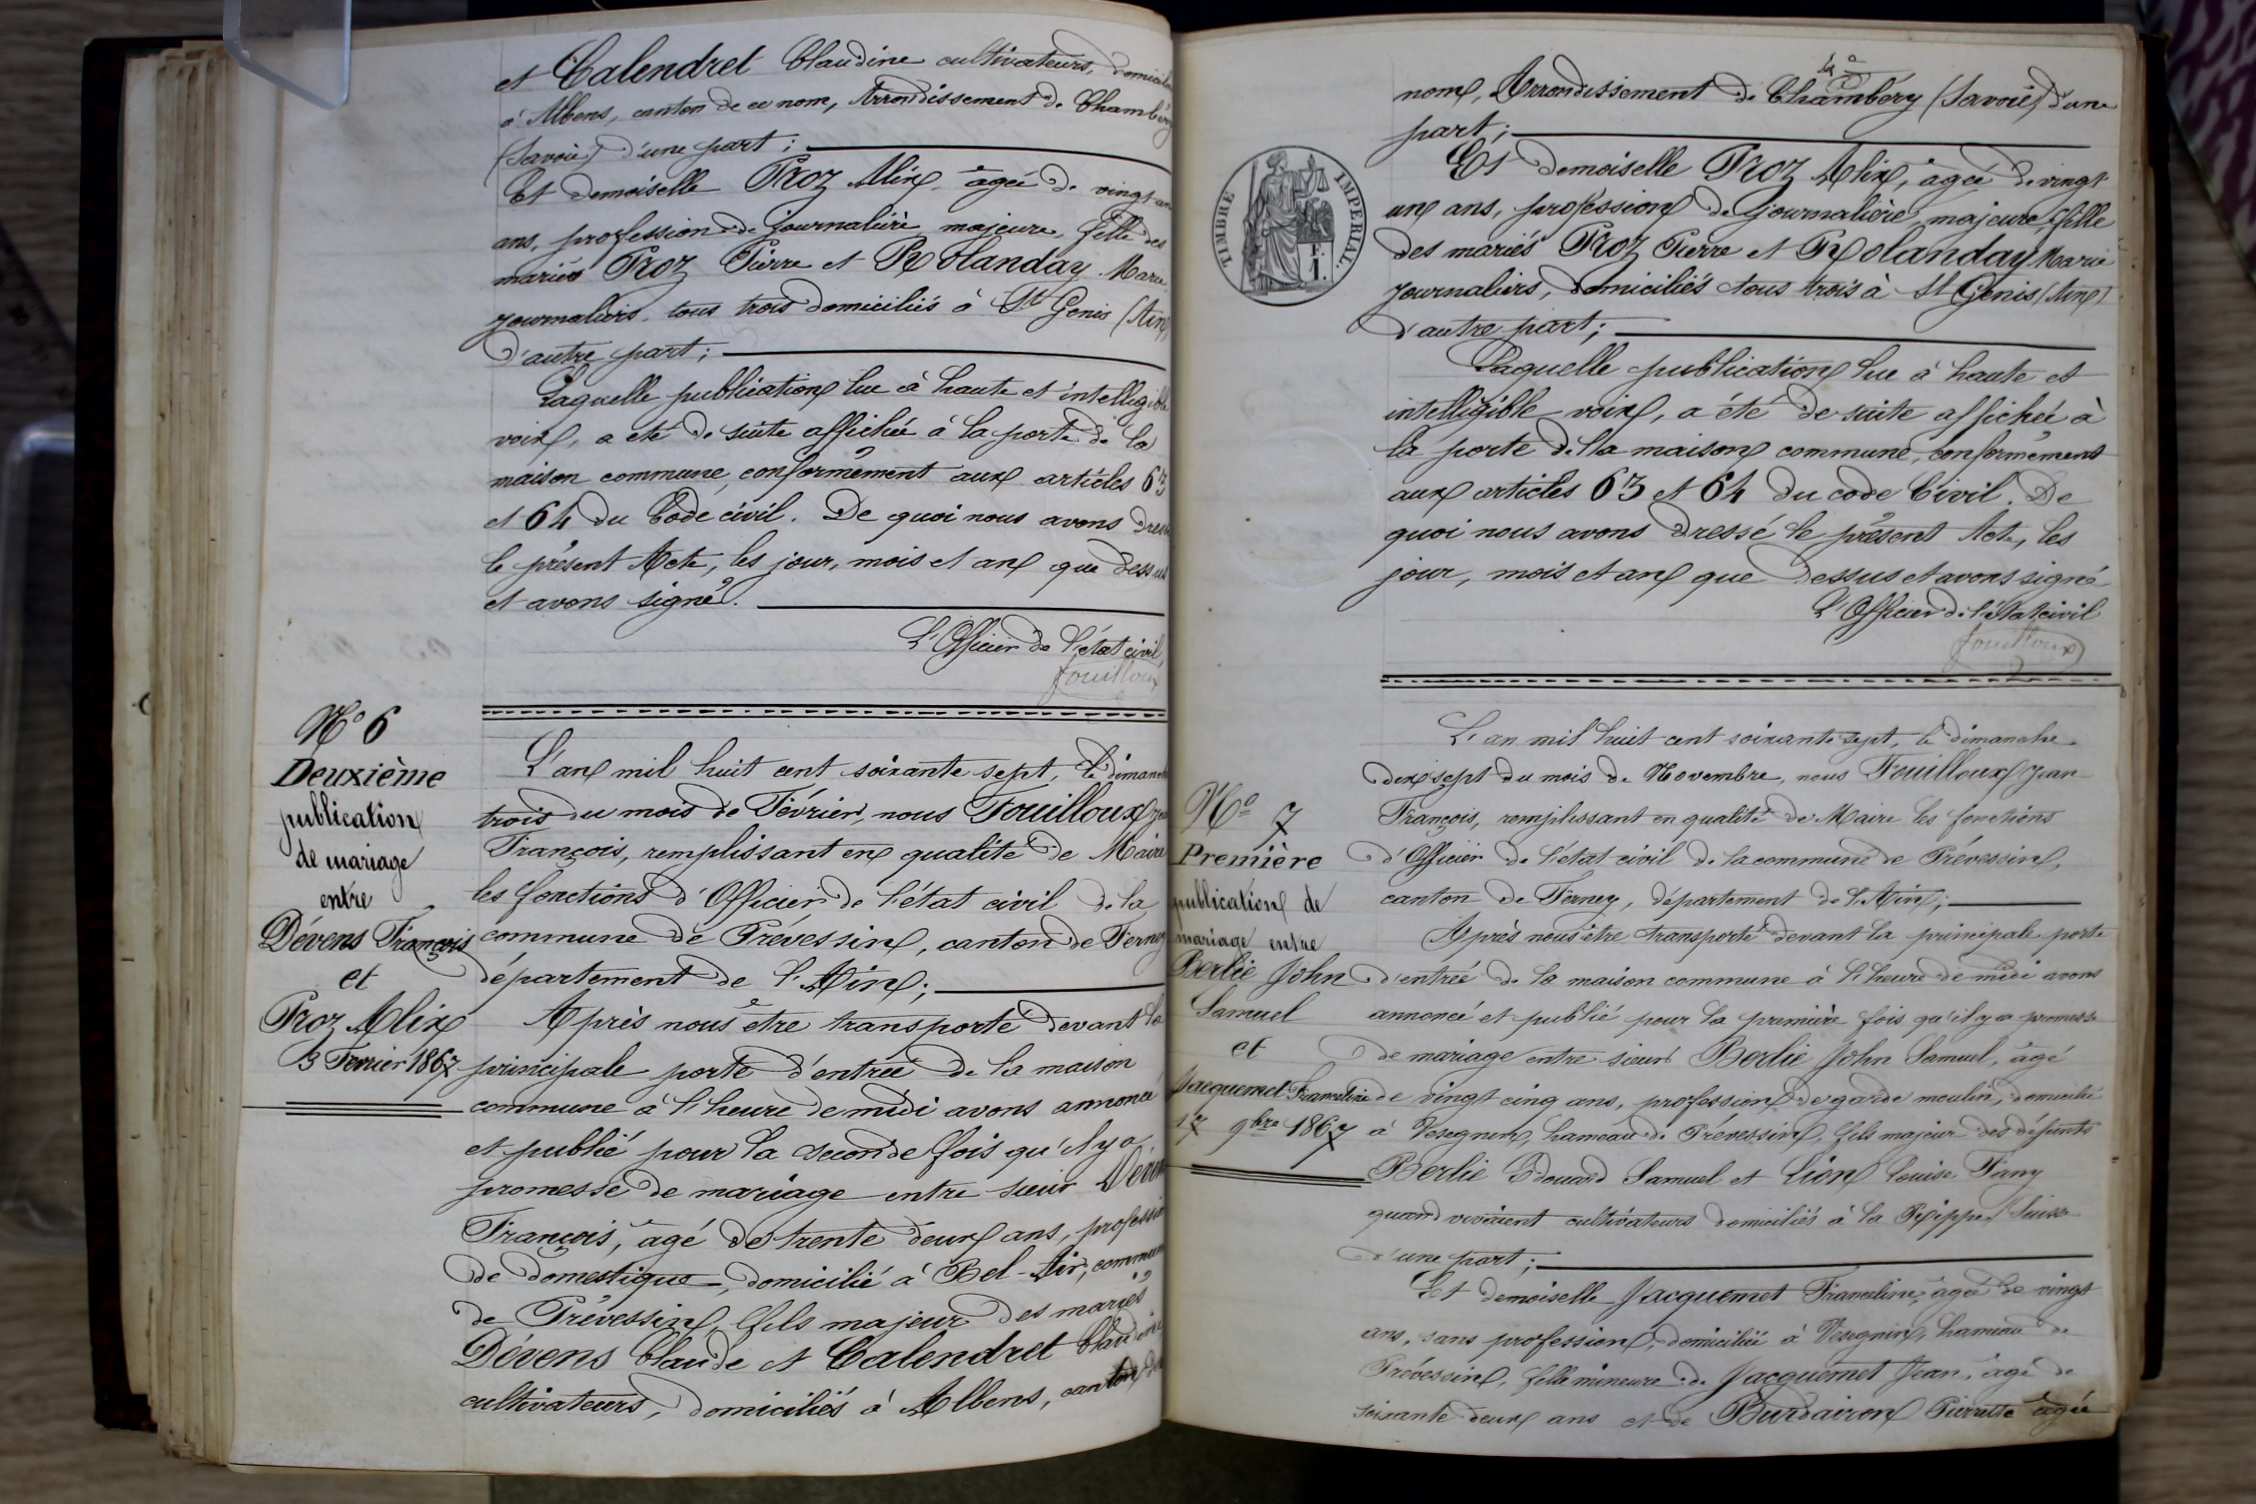 et Calendret Claudine cultivateurs, domiciliés
à Albens, canton de ce nom, Arrondissement de Chambéry
(Savoie) d'une part;
Et demoiselle Proz Alix, âgée de vingt un
ans, profession de journalière, majeure, fille des
mariés Proz Pierre et Rolanday Marie
journaliers, tous trois domiciliés à St Genis (Ain)
d'autre part;
Laquelle publication lue à haute et intelligible
voix, a été de suite affichée à la porte de la
maison commune, conformément aux articles 63
et 64 du Code civil. De quoi nous avons dressé
le présent Acte, les jour, mois et an que dessus
et avons signé.
L'Officier de l'état civil,
Fouilloux
No 6
Deuxième
publication
de mariage
entre
Dévens François
et
Proz Alix
3 Février 1867
L'an mil huit cent soixante sept, le dimanche
trois du mois de Février, nous Fouilloux Jean
François, remplissant en qualité de Maire
les fonctions d'Officier de l'état civil de la
commune de Prévessin, canton de Ferney
département de l'Ain;
Après nous être transporté devant la
principale porte d'entrée de la maison
commune à l'heure de midi avons annoncé
et publié pour la seconde fois qu'il y a
promesse de mariage entre sieur Dévens
François, âgé de trente deux ans, profession
de domestique, domicilié à Bel-Air, commune
de Prévessin, fils majeur des mariés
Dévens Claude et Calendret Claudine
cultivateurs, domiciliés à Albens, canton de ce
nom, Arrondissement de Chambéry (Savoie) d'une
part;
TIMBRE IMPERIAL
F.
1.
Et demoiselle Proz Alix, âgée de vingt
un ans, profession de journalière, majeure, fille
des mariés Proz Pierre et Rolanday Marie
journaliers, domiciliés tous trois à St Genis (Ain)
d'autre part;
Laquelle publication lue à haute et
intelligible voix, a été de suite affichée à
la porte de la maison commune, conformément
aux articles 63 et 64 du code Civil. De
quoi nous avons dressé le présent Acte, les
jour, mois et an que dessus et avons signé
L'Officier de l'état civil
Fouilloux
No 7
Première
publication de
mariage entre
Berlie John
Samuel
et
Jacquemet Franceline
17 9bre 1867
L'an mil huit cent soixante sept, le dimanche
dix sept du mois de Novembre, nous Fouilloux Jean
François, remplissant en qualité de Maire les fonctions
d'Officier de l'état civil de la commune de Prévessin,
canton de Ferney, département de l'Ain;
Après nous être transporté devant la principale porte
d'entrée de la maison commune à l'heure de midi avons
annoncé et publié pour la première fois qu'il y a promesse
de mariage entre sieur Berlie John Samuel, âgé
de vingt cinq ans, profession de garde moulin, domicilié
à Vesegnin, hameau de Prévessin, fils majeur des défunts
Berlie Edouard Samuel et Lion Louise Fany
quand vivaient cultivateurs domiciliés à la Rippe Suisse
d'une part;
Et demoiselle Jacquemet Franceline, âgée de vingt
ans, sans profession, domiciliée à Vesegnin, hameau de
Prévessin, fille mineure de Jacquemet Jean, âgé de
soixante deux ans et de Burdairon Pierrette âgée